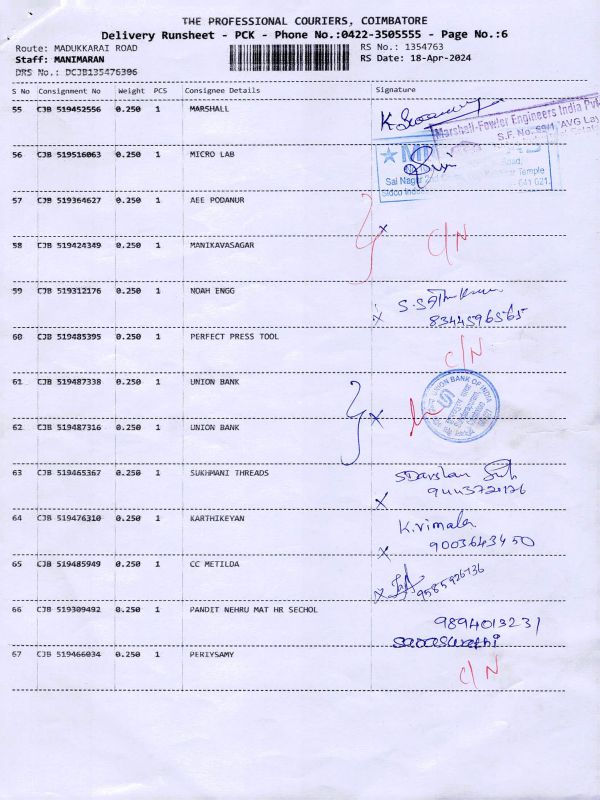 THE PROFESSIONAL COURIERS, COIMBATORE
Delivery Runsheet - PCK - Phone No.:0422-3505555 - Page No.:6
Route: MADUKKARAI ROAD RS No.: 1354763
Staff: MANIMARAN RS Date: 18-Apr-2024
DRS No.: DCJB135476306
S No Consignment No Weight PCS Consignee Details Signature
55 CJB 519452556 0.250 1 MARSHALL
Marshall-Fowler Engineers India Pvt
S.F. No. 59/1, AVG Lay
56 CJB 519516063 0.250 1 MICRO LAB
Road,
Sai Nagar Temple
Sidco Indu 641 021.
57 CJB 519364627 0.250 1 AEE PODANUR
C/N
58 CJB 519424349 0.250 1 MANIKAVASAGAR
59 CJB 519312176 0.250 1 NOAH ENGG
8344596565
60 CJB 519485395 0.250 1 PERFECT PRESS TOOL C/N
61 CJB 519487338 0.250 1 UNION BANK
UNION BANK OF INDIA
62 CJB 519487316 0.250 1 UNION BANK
63 CJB 519465367 0.250 1 SUKHMANI THREADS
64 CJB 519476310 0.250 1 KARTHIKEYAN K.Vimala
9003643450
65 CJB 519485949 0.250 1 CC METILDA 9585926736
66 CJB 519309492 0.250 1 PANDIT NEHRU MAT HR SECHOL
9894013231
Saraswathi
67 CJB 519466034 0.250 1 PERIYSAMY C/N